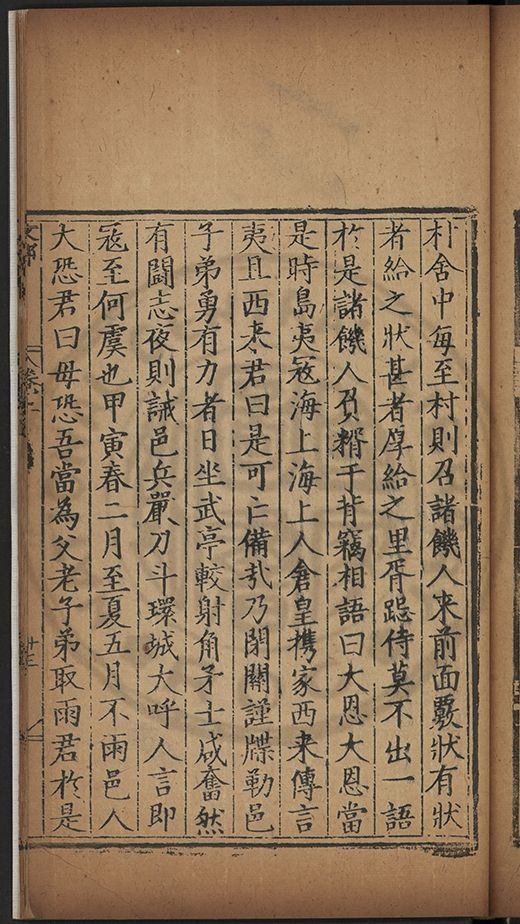 村舍中每至村則召諸饑人來前面覈狀有狀
者給之狀甚者厚給之里胥跽侍莫不出一語
於是諸饑人負糈于背竊相語曰大恩大恩當
是時島夷冦海上海上人倉皇携家西来傳言
夷且西来君曰是可亡備㢤乃閉關謹牒勒邑
子弟勇有力者日坐武亭較射角矛士咸奮然
有闘志夜則誡邑兵嚴刀斗環城大呼人言即
冦至何虞也甲寅春二月至夏五月不雨邑人
大恐君曰毋恐吾當為父老子弟取雨君於是
卷十